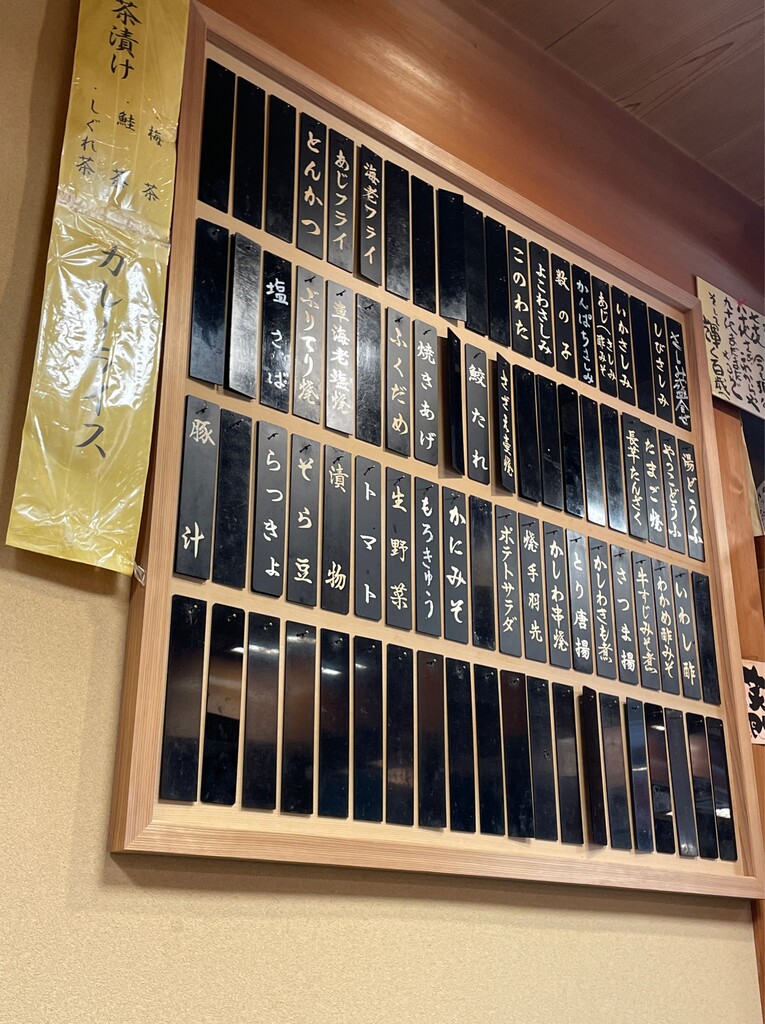 さしみ盛合せ
しびさしみ
いかさしみ
あじ(さしみ 酢みそ
かんぱちさしみ
数の子
よこわさしみ
このわた
海老フライ
あじフライ
とんかつ
湯どうふ
やっこどうふ
たまご焼
長芋たんざく
さざえ壺焼
鮫たれ
焼きあげ
ふくだめ
車海老塩焼
ぶりてり焼
塩さば
いわし酢
わかめ酢みそ
牛すじみそ煮
さつま揚
かしわきも煮
とり唐揚
かしわ串焼
焼手羽先
ポテトサラダ
かにみそ
もろきゅう
生野菜
トマト
漬物
そら豆
らつきょ
豚汁
茶漬け
・梅茶
・鮭茶
・しぐれ茶
カレーライス